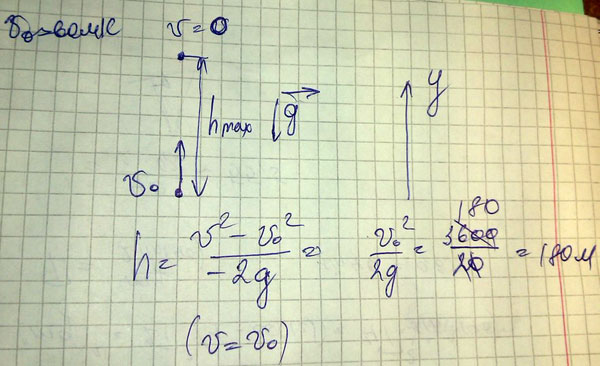 v₀=60м/с v = 0
hmax g y
v₀
h = (v² - v₀²)/(-2g) = v₀²/2g = 3600/20 = 180м
180
(v = v₀)